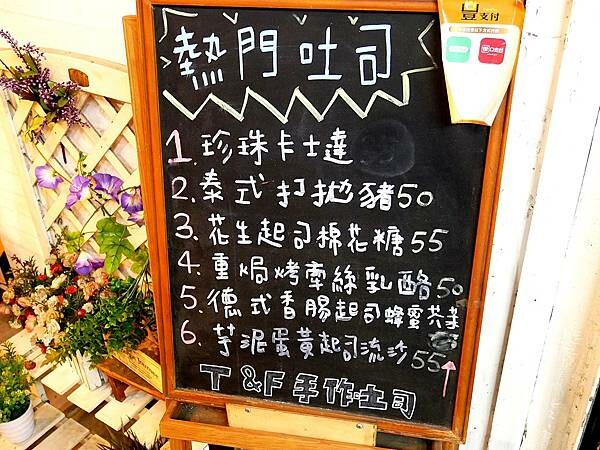 支付
熱門吐司
1. 珍珠卡士達
2. 泰式打拋豬50
3. 花生起司棉花糖55
4. 重焗烤牽絲乳酪50
5. 德式香腸起司蜂蜜芥茉
6. 芋泥蛋黃起司流沙55
T & F 手作吐司